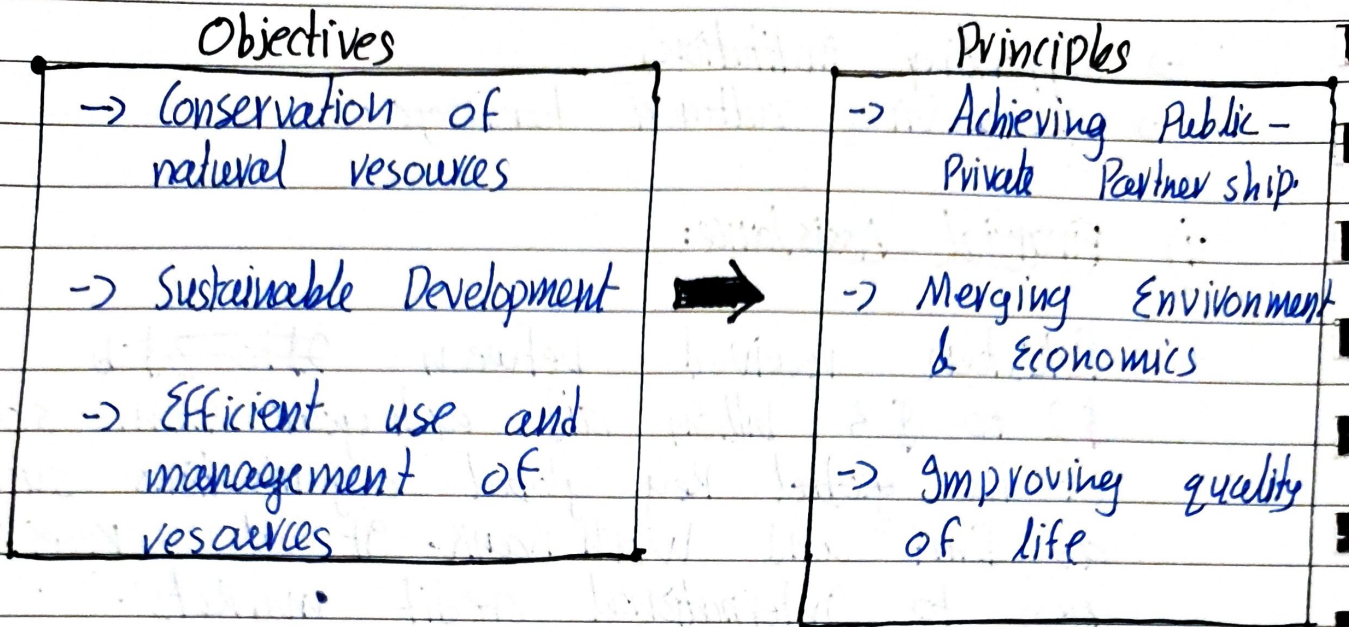 Objectives
-> Conservation of
natural resources
-> Sustainable Development
-> Efficient use and
management of
resources
Principles
-> Achieving Public -
Private Partner ship.
-> Merging Environment
& Economics
-> Improving quality
of life